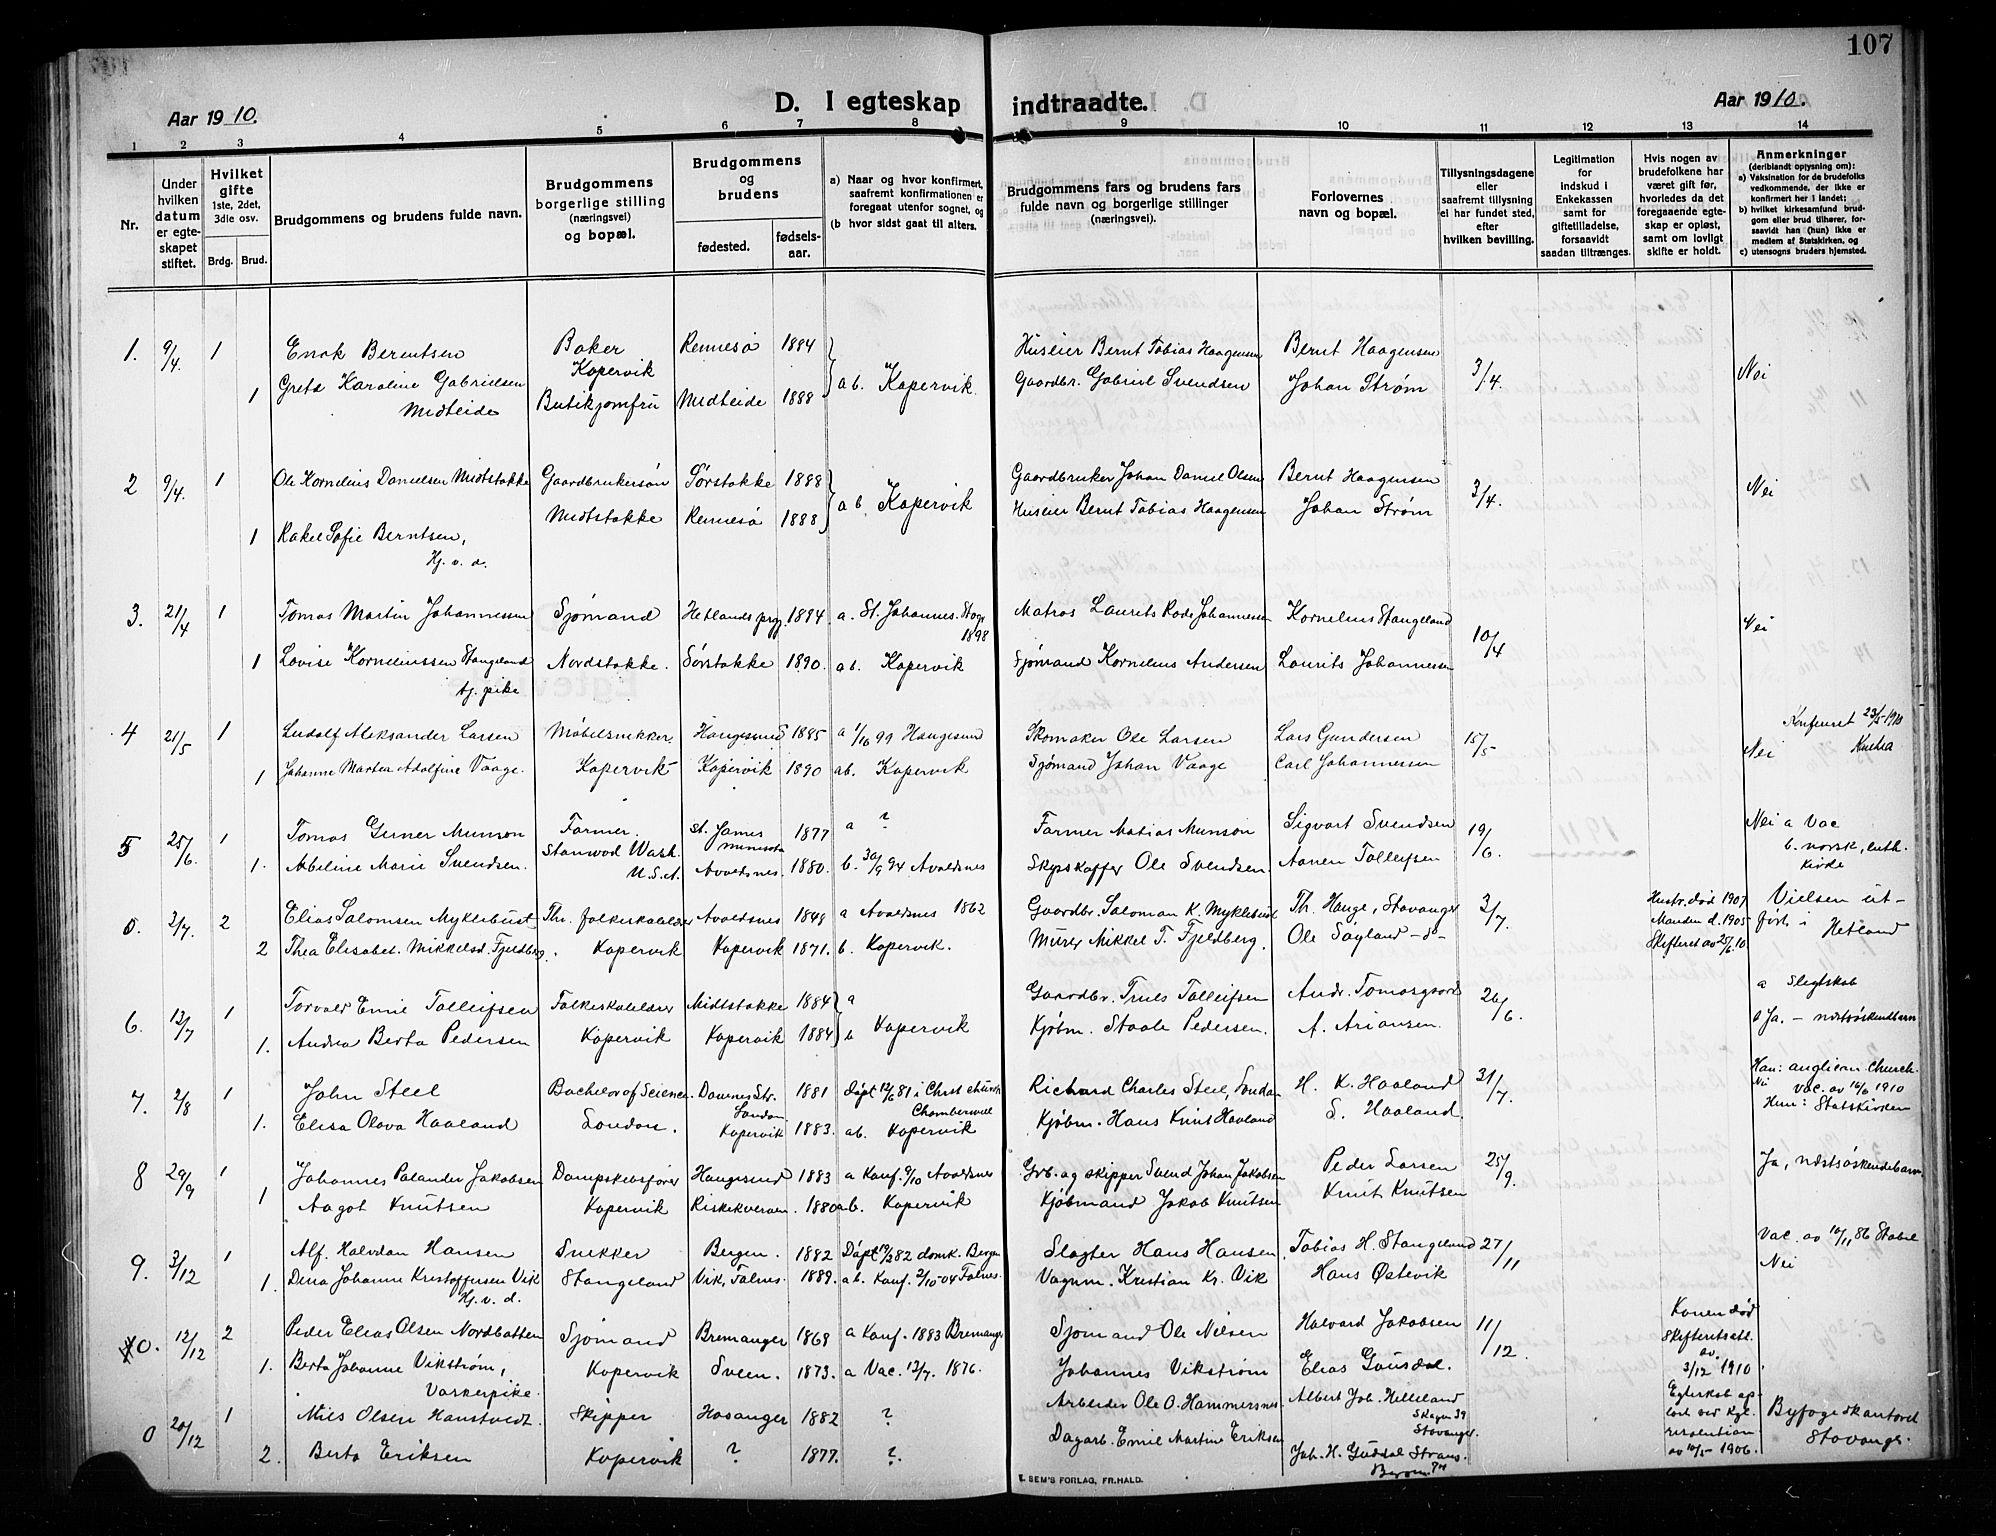 107
Aar 1910.
D. I egteskap indtraadte.
Aar 1910.
1 2 3 4 5 6 7 8 9 10 11 12 13 14
Nr.
Under hvilken datum er egteskapet stiftet.
Hvilket gifte 1ste, 2det, 3die osv.
Brdg. Brud.
Brudgommens og brudens fulde navn.
Brudgommens borgerlige stilling (næringsvei) og bopæl.
Brudgommens og brudens
fødested. fødselsaar.
a) Naar og hvor konfirmert, saafremt konfirmationen er foregaat utenfor sognet, og
(b hvor sidst gaat til alters.
Brudgommens fars og brudens fars fulde navn og borgerlige stillinger (næringsvei).
Forlovernes navn og bopæl.
Tillysningsdagene eller saafremt tillysning ei har fundet sted, efter hvilken bevilling.
Legitimation for indskud i Enkekassen samt for giftetilladelse, forsaavidt saadan tiltrænges.
Hvis nogen av brudefolkene har været gift før, hvorledes da det foregaaende egteskap er opløst, samt om lovligt skifte er holdt.
Anmerkninger (deriblandt opjysning om):
a) Vaksination for de brudefolks vedkommende, der ikke er konfirmert her i landet;
b) hvilket kirkesamfund brudgom eller brud tilhører, forsaavidt han (hun) ikke er medlem af Statskirken, og
c) utensogns bruders hjemsted.
1. 9/4. 1 Enok Berentsen Baker Rennesø 1884 Huseier Bernt Tobias Haagensen Bernt Haagensen 3/4. Nei
Kopervik
1 Greta Karoline Gabrielsen Butikjomfru Midteide 1888 ab. Kopervik Gaardbr. Gabriel Svendsen Johan Strøm
Midteide
2 9/4. 1 Ole Kornelius Danielsen Midtstokke Gaardbrukersøn Sørstokke 1888 ab Kopervik Gaardbruker Johan Daniel Olsen Bernt Haagensen 3/4. Nei
Midtstokke Rennesø 1888 Huseier Bernt Tobias Haagensen Johan Strøm
1 Rakel Sofie Berntsen,
Hj. v. d.
3. 21/4 1 Tomas Martin Johannessen Sjømand Hetlands prgj. 1884 a. St. Johannes. Stvgr 1898 Matros Laurits Rode Johannessen Kornelius Stangeland 10/4 Nei
1 Lovise Kornelinssen Stangeland Nordstokke. Sørstokke 1890. ab. Kopervik Sjømand Kornelius Andersen Laurits Johannessen
tj. pike
4 21/5 1 Ludolf Aleksander Larsen Møbelsnekker Haugesund 1885 a 1/10 99 Haugesund Skomaker Ole Larsen Lars Gundersen 15/5 Nei Konferert 23/5-1910
1 Johanne Martea Adolfine Vaage. Kopervik Kopervik 1890 ab. Kopervik Sjømand Johan Vaage Carl Johannessen
5 25/6. 1 Tomas Gerner Munson Farmer. St. James Minesota 1877 a ? Farmer Matias Munson Sigvart Svendsen 19/6. Nei a Vac
1. Abeline Marie Svendsen. Stanwod Wash. U.S.A. Avaldsnes. 1880. b. 30/9 94 Avaldsnes Skysskaffer Ole Svendsen. Aanen Tolleifsen b. norsk, luth. kirke
0. 3/7. 2 Elias Salomsen Myklebust Fhv. folkeskolelærer Avaldsnes 1848 a Avaldsnes 1862 Gaardbr. Saloman K. Myklebust Th. Hauge, Stavanger 3/7. Hustr. død 1907 Vielsen ut-
2 Thea Elisabet. Mikkelsd. Fjeldberg. Kopervik Kopervik 1871. b. Kopervik. Murer Mikkel T. Fjeldberg. Ole Søyland -d- Manden d. 1905 Skifteret av 25/6.10 ført i Hetland
6. 13/7 1 Torvald Emil Tolleifsen Folkeskolelærer Midtstokke 1884 a Gaardbr. Truls Tolleifsen Andr. Tomasgaard 26/6. a Slegtskab
1. Andrea Berta Pedersen Kopervik Kopervik 1884 b Kopervik Kjøbm. Staale Pedersen. A. Ariansen. Ja. – næstsøskendbarn
7. 2/8 1 John Steel Bachelor of Science Downes Str. London 1881 Døpt 12/6 81 i Christ church Chamberwell Richard Charles Steel, London H. K. Haaland 31/7. Han: anglican Church.
Nei Vac. av 16/6 1910
1. Elisa Olava Haaland London. Kopervik 1883. ab. Kopervik Kjøbm. Hans Knut Haaland S. Haaland. Hun: Statskirken
8 29/9 1 Johannes Palander Jakobsen Dampskibsfører Haugesund 1883 a Konf. 9/10 Avaldsnes Grb. og skipper Svend Johan Jakobsen Peder Larsen 25/9. Ja, næstsøskendebarn
1 Aagot Knutsen Kopervik Riskekværven. 1880 ab. Kopervik Kjøbmand Jakob Knutsen Knut Knutsen
9. 3/12 1 Alf. Halvdan Hansen Snekker Bergen. 1882 Døpt 19/2 82 domk. Bergen Slagter Hans Hansen Tobias H. Stangeland 27/11 Vac. av 10/11 86 Stabel
1. Dena Johanne Kristoffersen Vik Stangeland Vik, Falnes. 1889. ab. Konf. 2/10-04 Falnes. Vognm. Kristian Kr. Vik Hans Østevik Nei
Hj. v. d.
10. 12/12 2 Peder Elias Olsen Nordbotten Sjømand Bremanger 1868 a Konf. 1883 Bremanger Sjømand Ole Nilsen Halvard Jakobsen 11/12. Konen død
Skifteretsatt. av 3/12 1910
1. Berta Johanne Vikstrøm, Kopervik Sveen. 1873. a Vac. 13/7. 1876. Johannes Vikstrøm Elias Gausdal.
Vaskerpike.
0 20/12 1 Nils Olsen Hanstvedt. Skipper Hosanger 1882 ? Arbeider Ole O. Hammersnes Albert Joh. Helleland Skagen 39 Stavanger. Egteskab opløst ved Kgl. resolution av 10/5 1906. Byfogedkontoret Stavanger.
2. Berta Eriksen Kopervik ? 1877. ?. Dagarb. Emil Martin Eriksen Joh. H. Guddal
E. SEM'S FORLAG, FR.HALD.